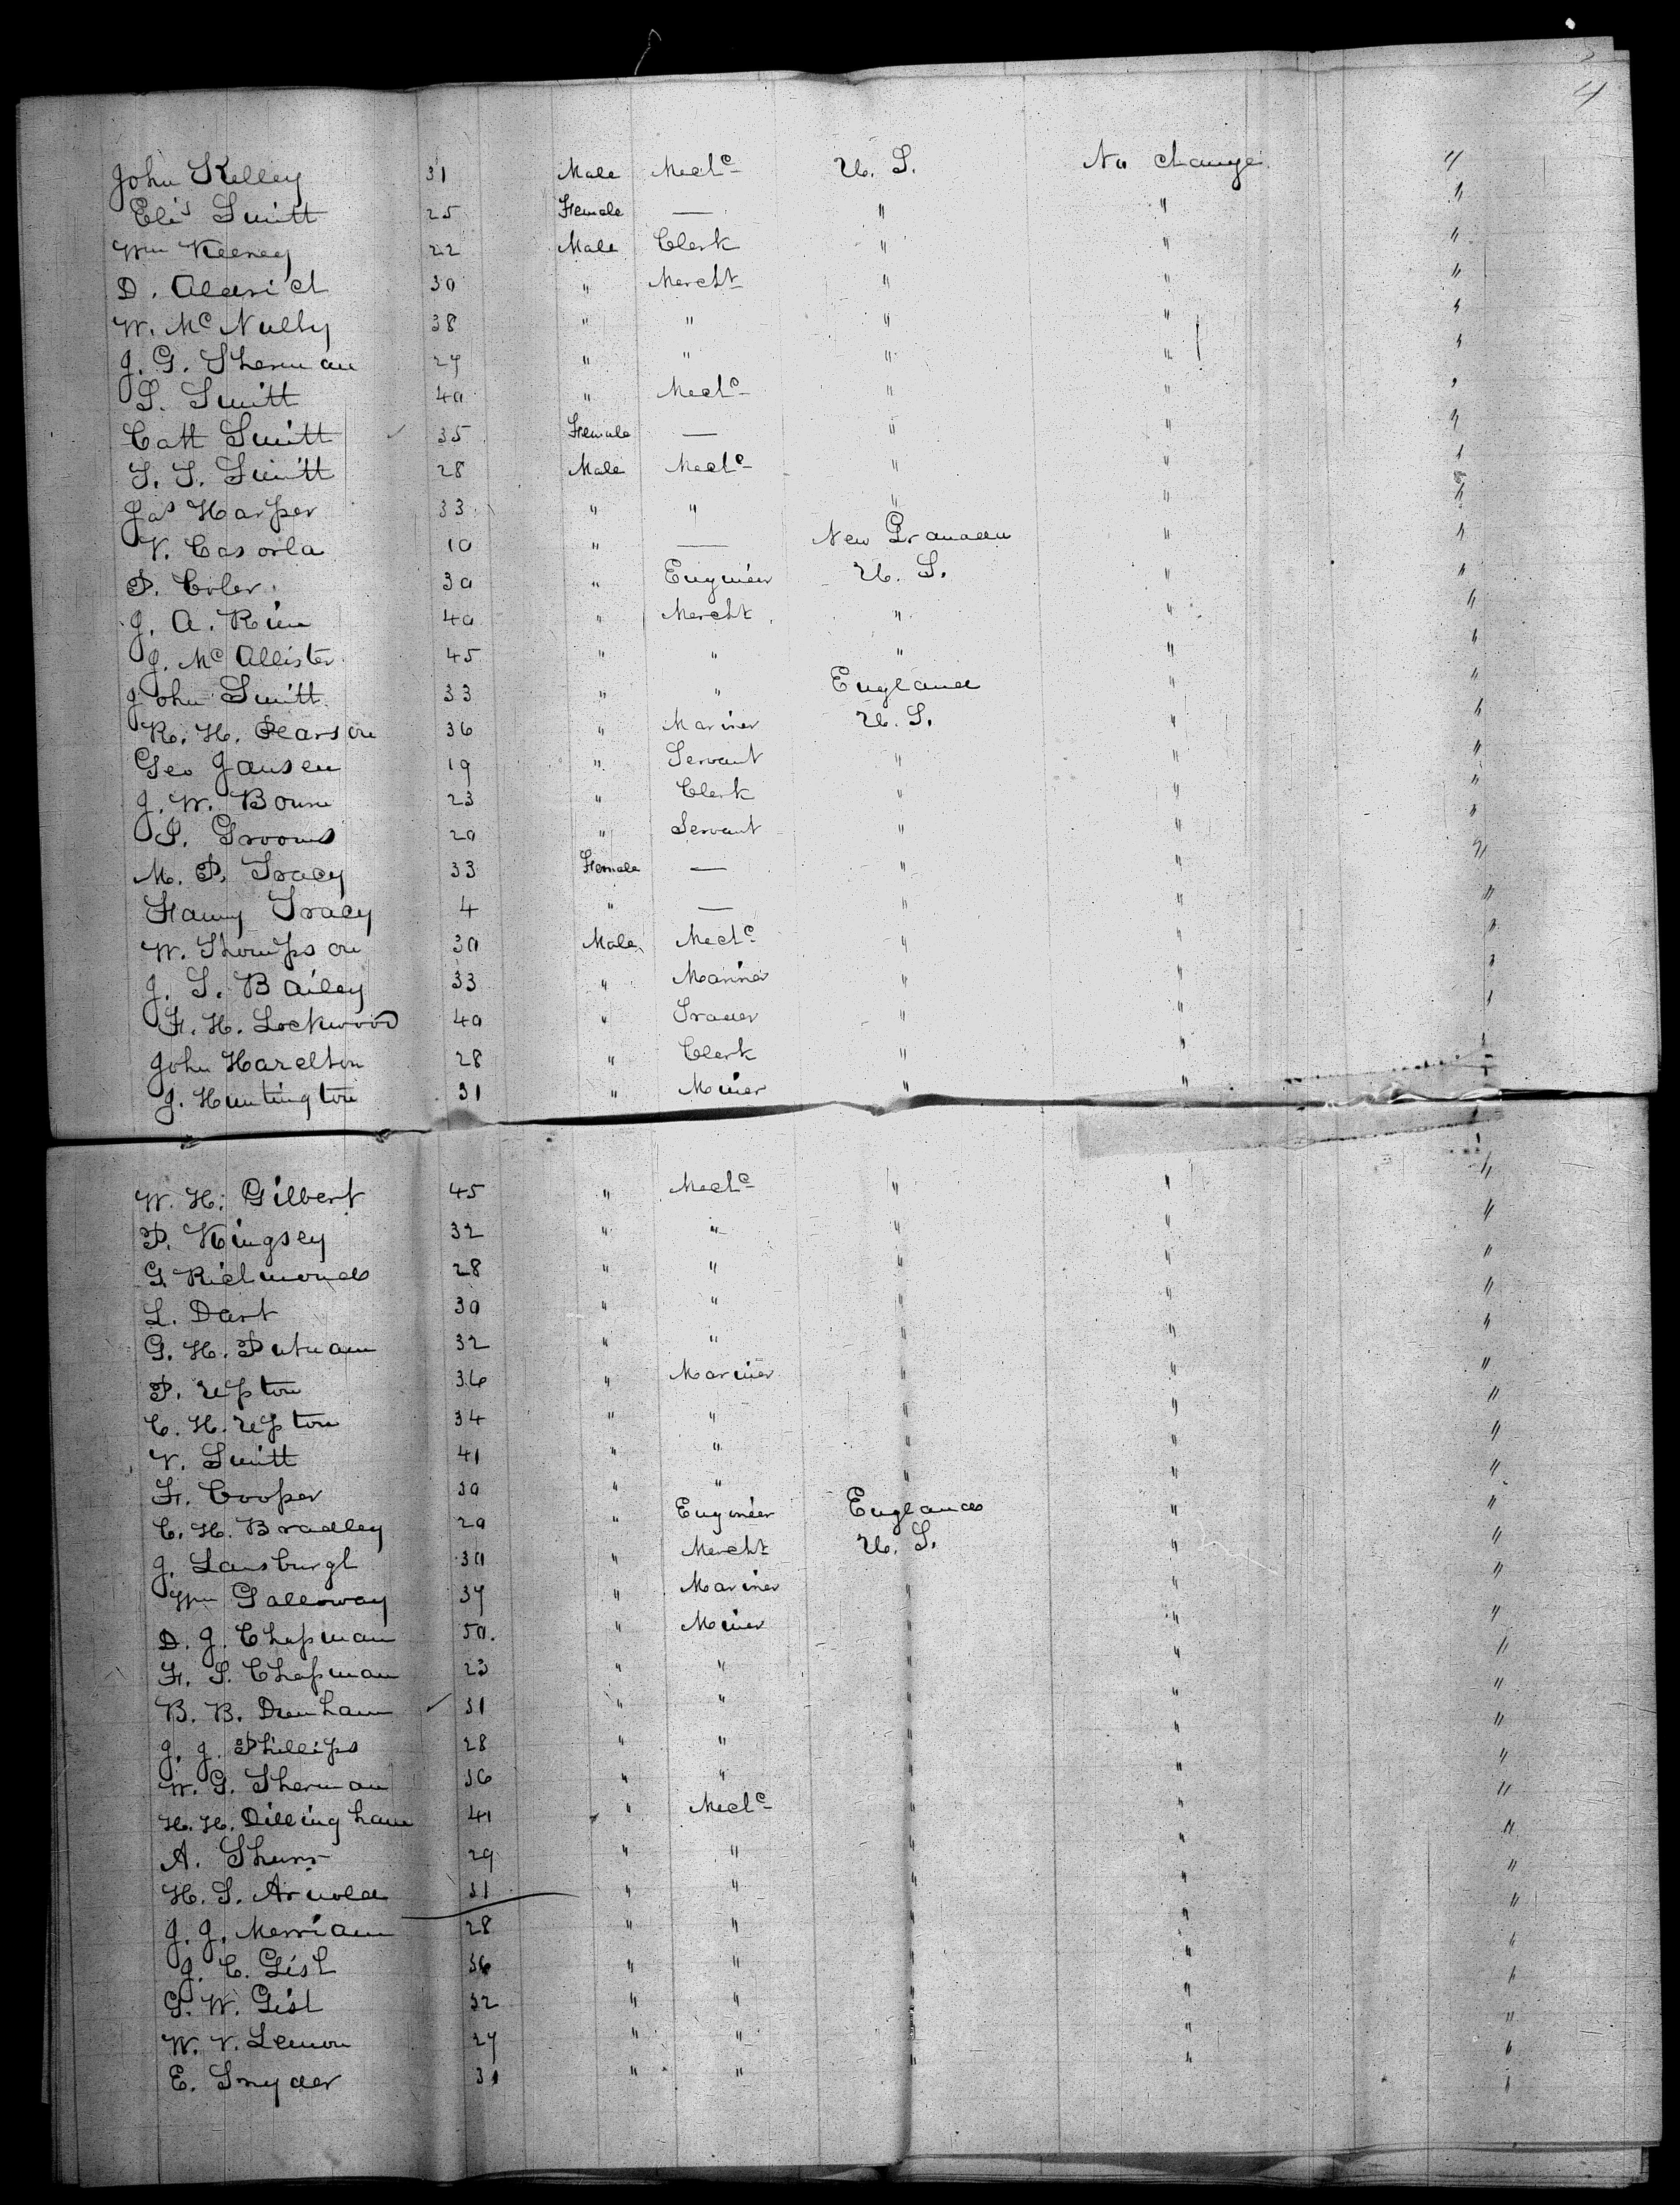 4
John Kelley 31 Male Mech^c U. S. No change "
Eliz Smith 25 Female — " " "
Wm Keeney 22 Male Clerk " " "
D. Aldrich 30 " Mercht " " "
W. McNulty 38 " " " " "
J. G. Sherman 27 " " " " "
S. Smith 40 " Mech^c " " "
Cath Smith 35 Female — " " "
T. S. Smith 28 Male Mech^c " " "
Jas Harper 33 " " " " "
V. Casorla 10 " — New Granada " "
P. Coler 30 " Engineer U. S. " "
J. A. Rim 40 " Mercht " " "
J. McAllister 45 " " " " "
John Smith 33 " " England " "
R. H. Pearson 36 " Mariner U. S. " "
Geo Jansen 19 " Servant " " "
J. W. Bourn 23 " Clerk " " "
P. Grooms 20 " Servant " " "
M. P. Tracy 33 Female — " " "
Fanny Tracy 4 " — " " "
W. Thompson 30 Male Mech^c " " "
J. S. Bailey 33 " Mariner " " "
F. H. Lockwood 40 " Trader " " "
John Hazelton 28 " Clerk " " "
J. Huntington 31 " Miner " " "
W. H. Gilbert 45 " Mech^c " " "
P. Kingsey 32 " " " " "
G. Richmond 28 " " " " "
L. Dart 30 " " " " "
G. H. Putnam 32 " " " " "
P. Upton 36 " Mariner " " "
C. H. Upton 34 " " " " "
V. Smith 41 " " " " "
F. Cooper 30 " " " " "
C. H. Bradley 20 " Engineer England " "
J. Lansburgh 30 " Mercht U. S. " "
Wm Galloway 37 " Mariner " " "
D. J. Chapman 50 " Miner " " "
F. S. Chapman 23 " " " " "
B. B. Dunham 31 " " " " "
J. J. Phillips 28 " " " " "
W. G. Sherman 36 " " " " "
H. H. Dillingham 41 " Mech^c " " "
A. Shurr 29 " " " " "
H. S. Arnold 31 " " " " "
J. J. Merriam 28 " " " " "
J. C. Gish 36 " " " " "
G. W. Gish 32 " " " " "
W. V. Lemon 27 " " " " "
E. Snyder 31 " " " " "